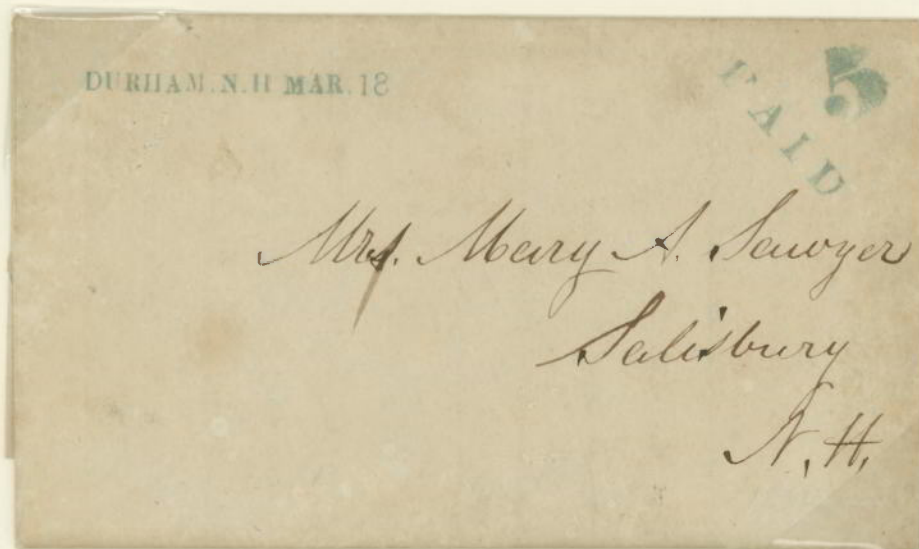 DURHAM.N.H MAR.18
5
PAID
Mrs. Mary A. Sawyer
Salisbury
N.H.